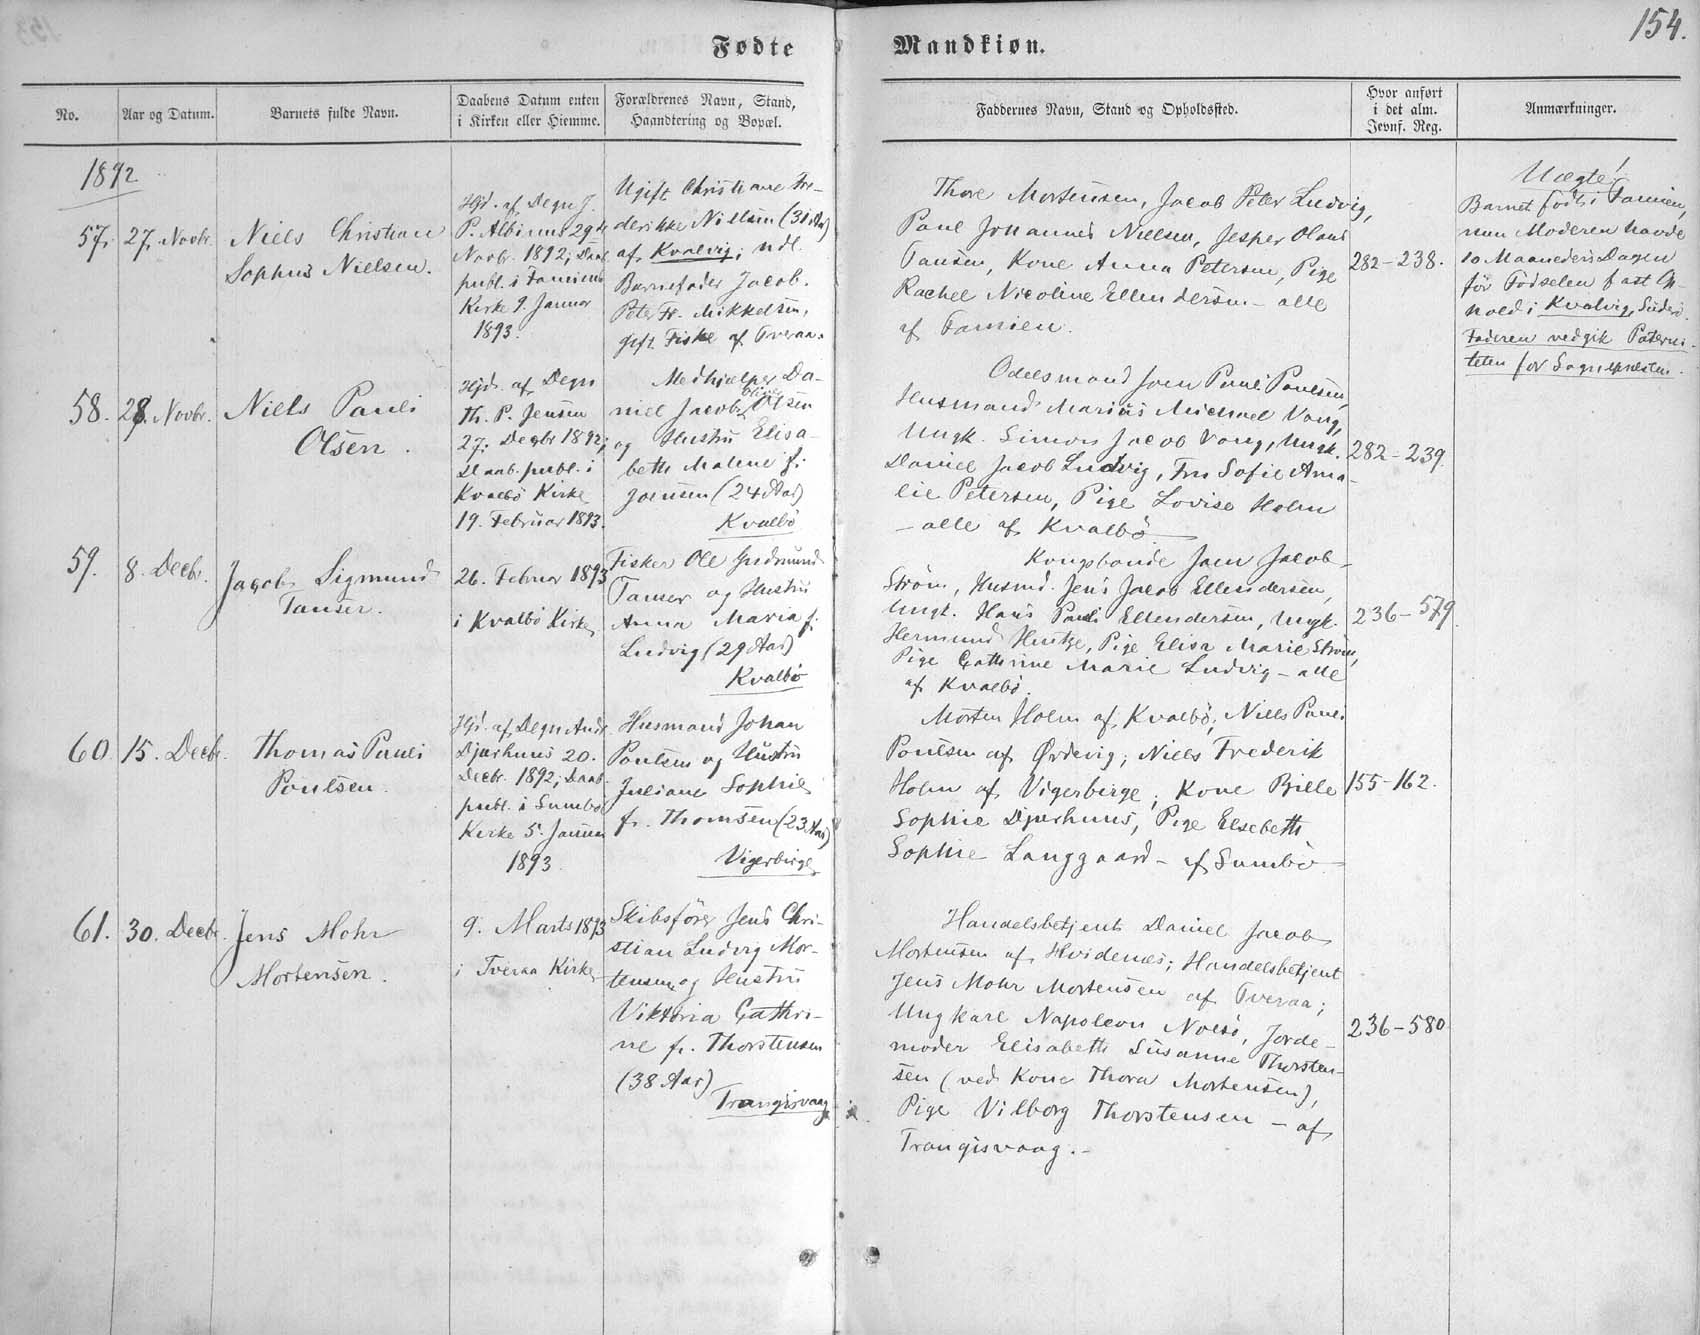 154.
Fødte Mandkiøn.
No.
Aar og Datum.
Barnets fulde Navn.
Daabens Datum enten
i Kirken eller Hiemme.
Forældrenes Navn, Stand,
Haandtering og Bopæl.
Faddernes Navn, Stand og Opholdssted.
Hvor anført
i det alm.
Jevnf. Reg.
Anmærkninger.
1892
57. 27. Novbr.
Niels Christian
Sophus Nielsen.
Hjd. af Degn J.
P. Albinus 29de
Novbr. 1892; Daab.
publ. i Famiens
Kirke 9. Januar
1893.
Ugift Christiane Fre-
derikke Nielsen (31 Aar)
af Kvalvig; udl.
Barnefader Jacob.
Peter Fr. Mikkelsen,
gift Fisker af Tveraa.
Thore Mortensen, Jacob Peter Ludvig,
Poul Johannes Nielsen, Jesper Olaus
Tausen, Kone Anna Petersen, Pige
Rachel Nicoline Ellendersen - alle
af Famien.
282-238.
Uægte!
Barnet født i Famien,
men Moderen havde
10 Maanedersdagen
før Fødselen fast Op-
hold i Kvalvig, Suderø.
Faderen vedgik Paterni-
teten for Sognepræsten.
58. 28. Novbr.
Niels Pauli
Olsen.
Hjd. af Degn
Th. P. Jensen
27. Decbr 1892;
Daab. publ. i
Kvalbø Kirke
19. Februar 1893.
Medhjælper Da-
niel Jacob Olsen
og Hustru Elisa-
beth Malene f.
Joensen (24 Aar)
Kvalbø
Odelsmand Joen Pauli Poulsen,
Husmand Marius Michael Vang,
Ungk. Simon Jacob Vang, Ungk.
Daniel Jacob Ludvig, Fru Sofie Ama-
lie Petersen, Pige Lovise Holm
- alle af Kvalbø
282-239.
59. 8. Decbr.
Jacob Sigmund
Tausen.
26. Februar 1893
i Kvalbø Kirke
Fisker Ole Gudmund
Tausen og Hustru
Anna Maria f.
Ludvig (29 Aar)
Kvalbø
Kongsbonde Joen Jacob
Strøm, Husmd. Jens Jacob Ellendersen,
Ungk. Hans Pauli Ellendersen, Ungk.
Hermund Hentze, Pige Elisa Marie Strøm,
Pige Cathrine Marie Ludvig - alle
af Kvalbø.
236-579.
60. 15. Decbr.
Thomas Pauli
Poulsen.
Hjd. af Degn Andr.
Djurhuus 20.
Decbr. 1892; Daab.
publ. i Sumbø
Kirke 5. Januar
1893.
Husmand Johan
Poulsen og Hustru
Juliane Sophie
f. Thomsen (23 Aar)
Vigerbirge
Morten Holm af Kvalbø, Niels Pauli
Poulsen af Ørdevig; Niels Frederik
Holm af Vigerbirge; Kone Bille
Sophie Djurhuus, Pige Elsebeth
Sophie Langgaard - af Sumbø
155-162.
61. 30. Decbr.
Jens Mohr
Mortensen.
9. Marts 1893
i Tveraa Kirke
Skibsfører Jens Chri-
stian Ludvig Mor-
tensen og Hustru
Viktoria Cathri-
ne f. Thorstensen
(38 Aar)
Trangisvaag
Handelsbetjent Daniel Jacob
Mortensen af Hvidenæs; Handelsbetjent
Jens Mohr Mortensen af Tveraa;
Ungkarl Napoleon Nolsø, Jorde-
moder Elisabeth Susanne Thorsten-
sen (ved Kone Thora Mortensen),
Pige Vilborg Thorstensen - af
Trangisvaag.-
236-580